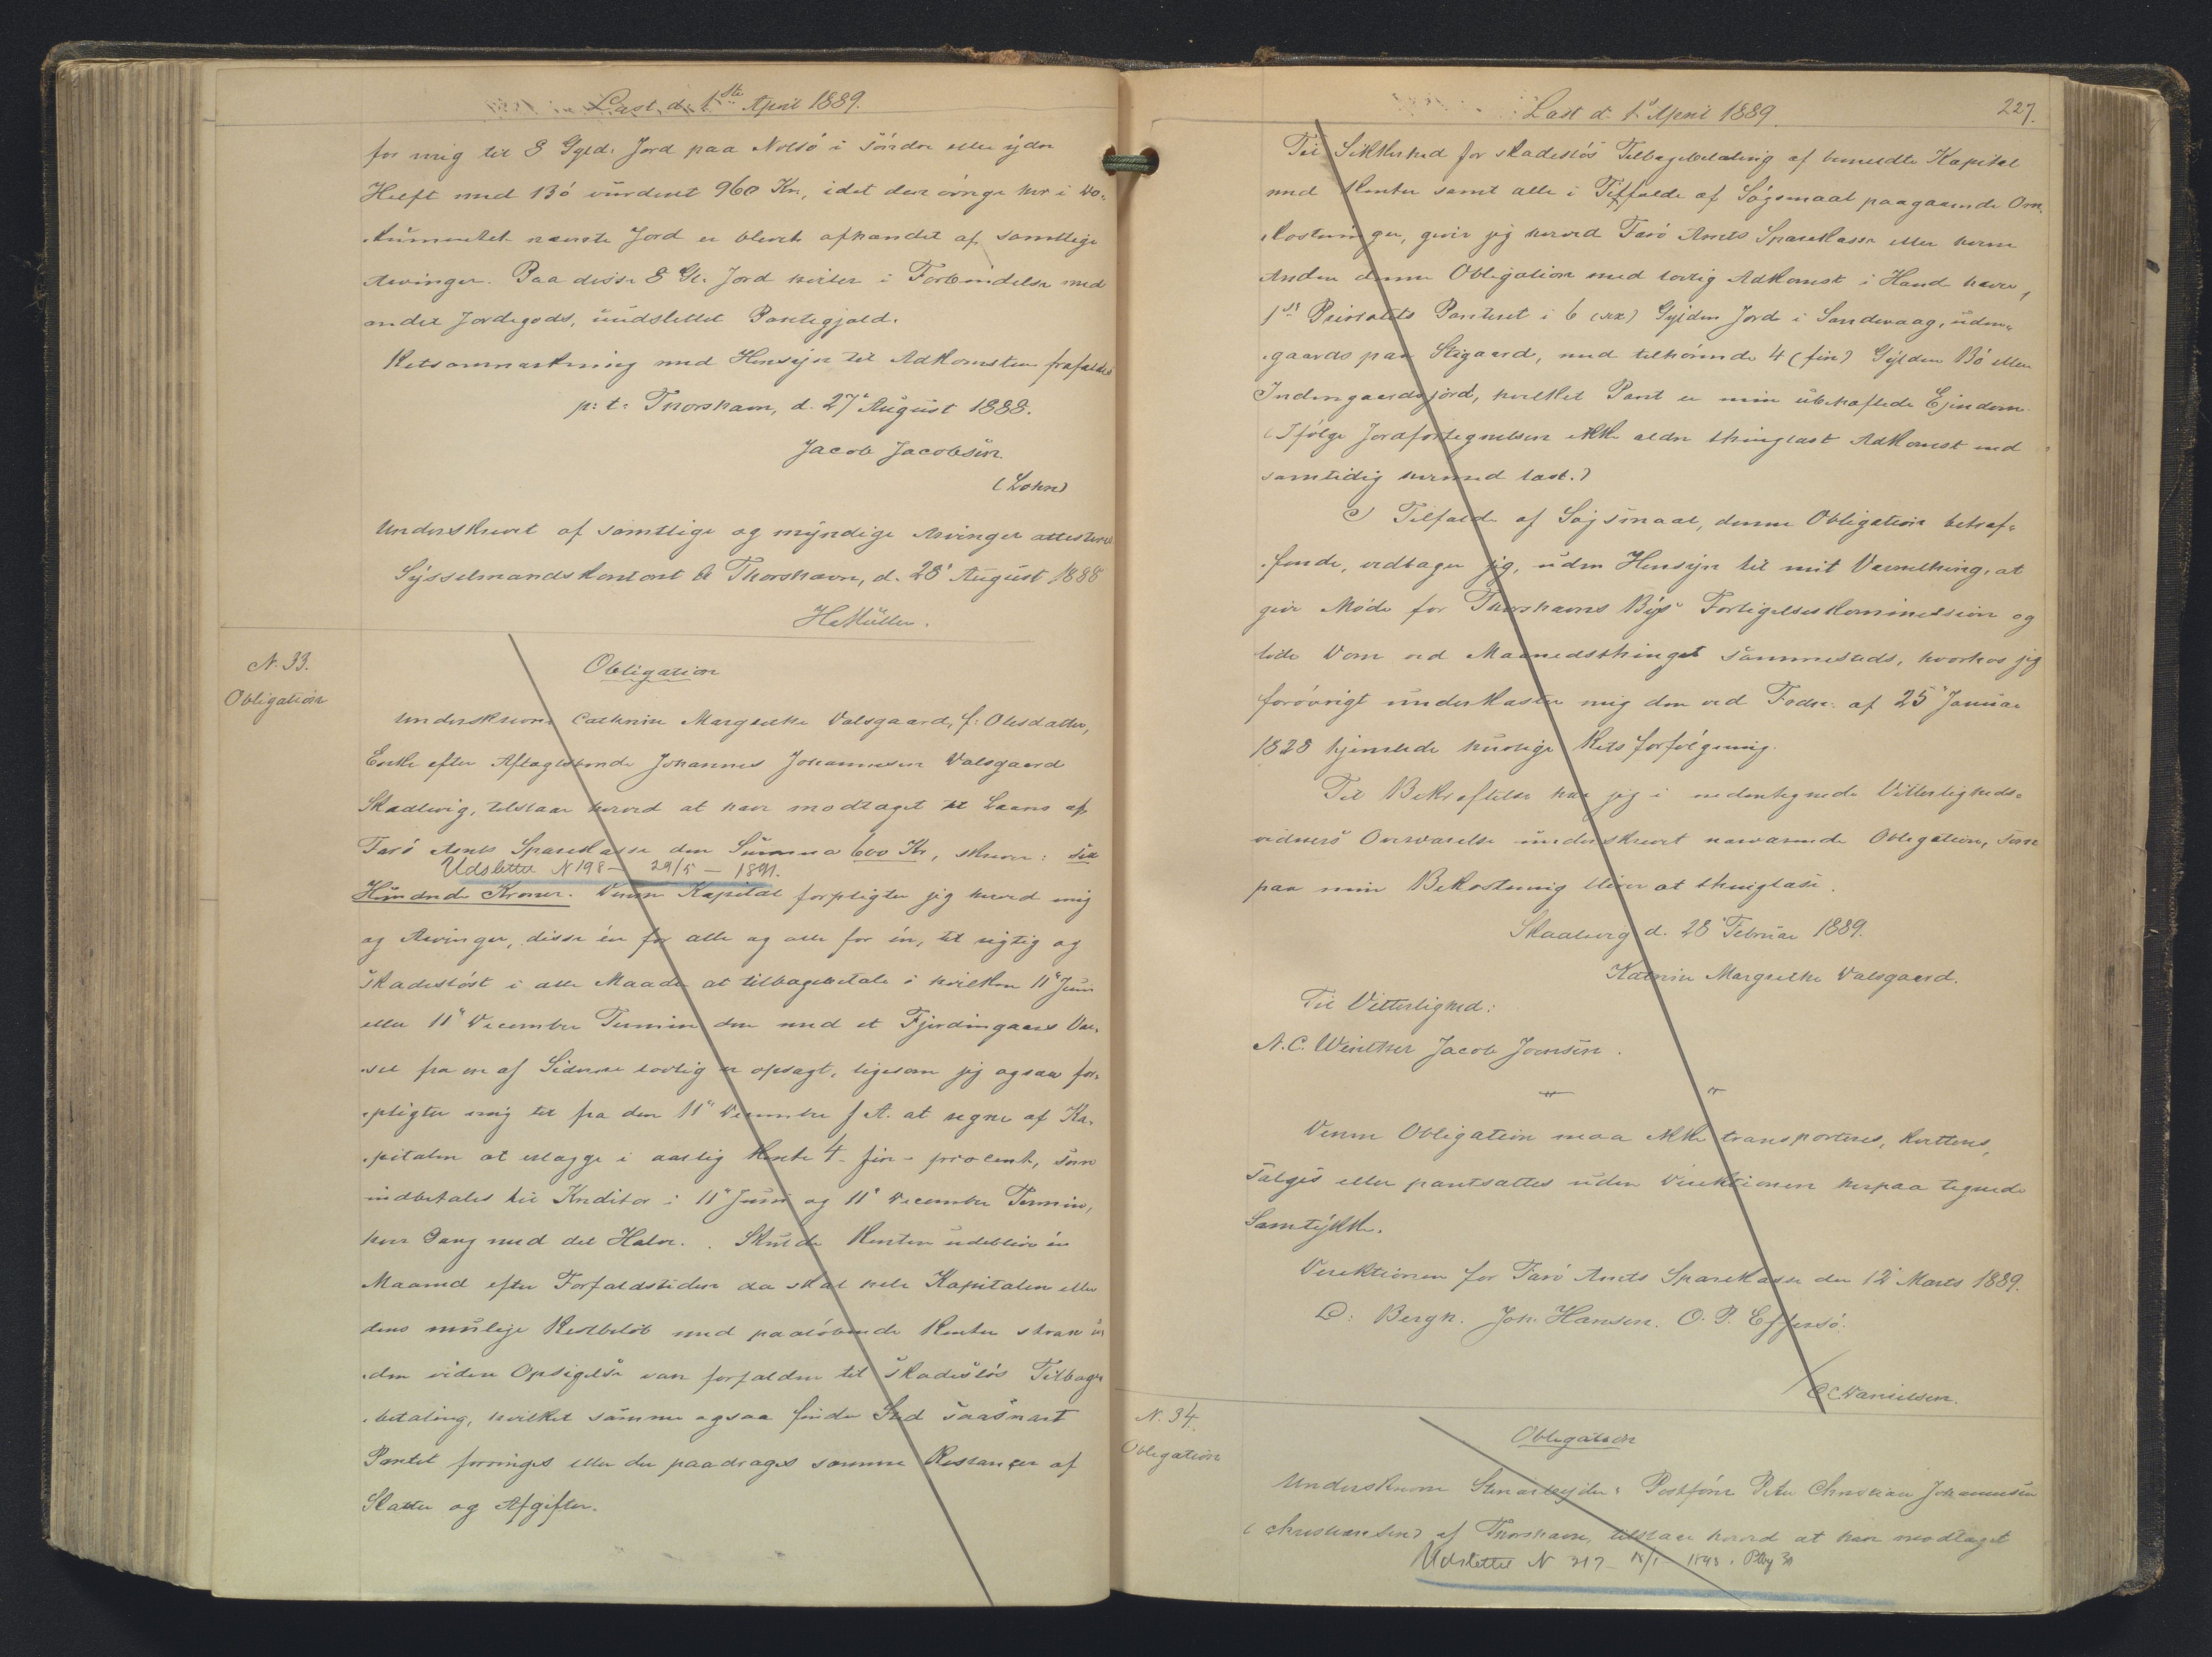 Læst d. 1ste April 1889.
for mig til 8 Gyld. Jord paa Nolsö i söndre eller ydre
Helft med Bö vürderet 960 Kr., idet den övrige her i Do-
kümentet nævnte Jord er blevet afhændet af samtlige
Arvinger. Paa disse 8 Gl. Jord hviler i Forbindelse med
andet Jordegods, üudslettet Pantegjæld.
Retsanmærkning med Hensyn til Adkomsten frafaldes
p: t: Thorshavn, d. 27' Aügüst 1888.
Jacob Jacobsen
(Lohn)
Underskrevet af samtlige og myndige Arvinger attesteres
Sysselmandskontoret i Thorshavn, d. 28' Aügüst 1888
H. Müller.
N. 33.
Obligation
Obligation
Underskrevne Cathrine Margrethe Dalsgaard, f: Olesdatter,
Enke efter Aftægtsmand Johannes Johannesen Dalsgaard
Skaalevig, tilstaar herved at have modtaget til Laans af
Færö Amts Sparekasse den Sümma 600 Kr, skriver: sex
Udslettet N 198 – 29/5 – 1891.
Hündrede Kroner. Denne Kapital forpligter jeg herved mig
og Arvinger, disse én for alle og alle for én, til rigtig og
skadeslöst i alle Maader at tilbagebetale i hvilken 11' Juni
eller 11' December Termin den med et Fjerdingaars Var-
sel fra en af Siderne lovlig er opsagt, ligesom jeg ogsaa for-
pligter mig til fra den 11' December f. A. at regne af Ka-
pitalen at erlægge i aarlig Rente 4 - fire - procent, som
indbetales til Kreditor i 11' Juni og 11' December Termin,
hver Gang med det Halve. Skulde Renten udeblive én
Maaned efter Forfaldstiden da skal hele Kapitalen eller
dens mulige Restbelöb med paalöbende Renter strax üd-
den viden Opsigelse være forfalden til skadeslös Tilbage-
betaling, hvilket samme ogsaa finder Sted saasnart
Pantet forringes eller der paadrages samme Restancer af
Skatter og Afgifter.
Læst d. 1' April 1889.
227.
Til Sikkerhed for skadeslös Tilbagebetaling af bemeldte Kapital
med Renter samt alle i Tilfælde af Sögsmaal paagaaende Om-
kostninger, giver jeg herved Færö Amts Sparekasse eller hvem
Anden denne Obligation med lovlig Adkomst i Hænde haver,
1ste Prioritets Panteret i 6 (sex) Gylden Jord i Sandevaag, uden-
gaards paa Stigaard, med tilhörende 4 (fire) Gylden Bö eller
Indengaardsjord, hvilket Pant er min übehæftede Ejendom.
(Ifölge Jordafortegnelsen ikke ældre thinglæst Adkomst end
samtidig hermed læst.)
I Tilfælde af Sögsmaal, denne Obligation betræf-
fende, vedtager jeg, uden Hensyn til mit Værnething, at
give Möde for Thorshavns Bys Forligelseskommission og
lide Dom ved Maanedsthinget sammesteds, hvorhos jeg
forövrigt ünderkaster mig den ved Frdn: af 25' Januar
1828 hjemlede hurtige Retsforfölgning.
Til Bekræftelse har jeg i nedentegnede Vitterligheds-
vidners Overværelse ünderskrevet nærværende Obligation, som
paa min Bekostning bliver at thinglæse.
Skaalevig d. 28' Februar 1889.
Katrine Margrethe Dalsgaard.
Til Vitterlighed:
N. C. Winther Jacob Joensen.
Denne Obligation maa ikke transporteres, kvitteres,
sælges eller pantsættes üden Direktionens herpaa tegnede
Samtykke.
Direktionen for Færö Amts Sparekasse den 12' Marts 1889.
C: Bergh. Joh. Hansen. O. P. Effersö.
/ O C Danielsen.
N. 34.
Obligation
Obligation
Underskrevne Stenarbejder & Postförer Peter Christian Johannesen
(Christiansen) af Thorshavn, tilstaar herved at have modtaget
Udslettet N 217 – 1893.